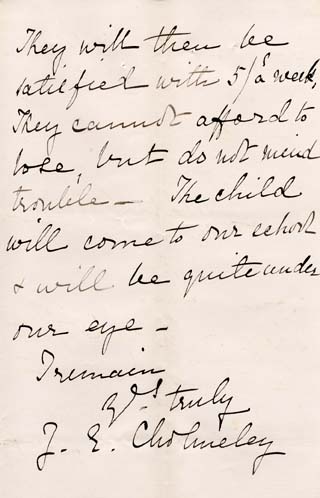 They will then be
satisfied with 5/ a week,
They cannot afford to
lose, but do not mind
trouble – The child
will come to our school
& will be quite under
our eye –
I remain
Yrs truly
J. E. Cholmeley